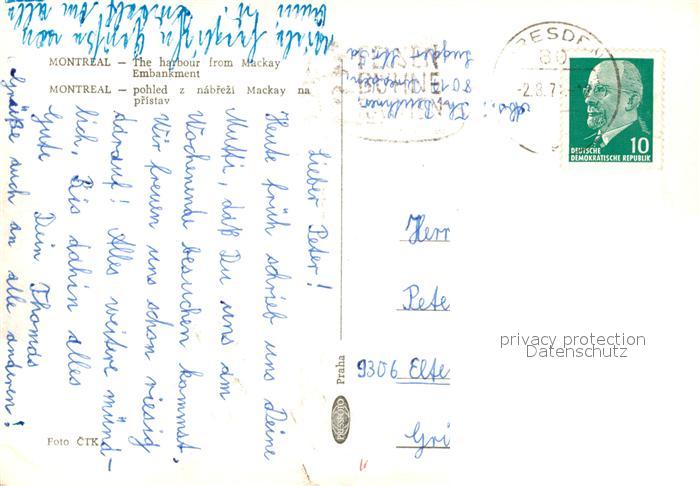 MONTREAL – The harbour from Mackay
Embankment
MONTREAL – pohled z nábřeží Mackay na
přístav
Lieber Peter!
Heute früh schrieb uns Deine
Mutti, daß Du uns am
Wochenende besuchen kommst.
Wir freuen uns schon riesig
darauf! Alles weitere münd-
lich. Bis dahin alles
Gute
Dein Thomas
Grüße auch an alle anderen!
Foto ČTK
PRESSFOTO
Praha
Abs.: Th.
8017 Dresden
DRESDEN
80
-2.8.7
DEUTSCHE
DEMOKRATISCHE REPUBLIK
10
Herr
Pete
9306 Elte
Gri
privacy protection
Datenschutz